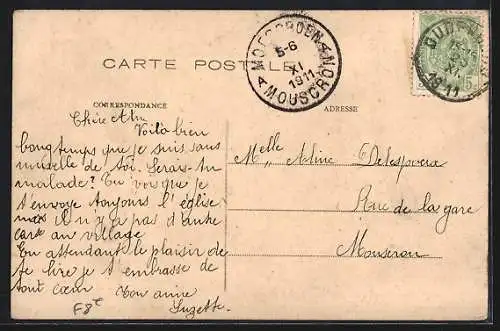 CARTE POSTALE
MOESCROEN A
5-6
XI
1911
A MOUSCRON
1911
5
CORRESPONDANCE
ADRESSE
Chère Aline
Voilà bien
longtemps que je suis sans
nouvelle de toi. Serais-tu
malade? Tu vois que je
t'envoye toujours l'église
mais il n'y a pas d'autre
carte au village
En attendant le plaisir de
te lire je t'embrasse de
tout cœur Ton amie
Suzette
F8c
Melle Aline Delespoux
Rue de la gare
Mouscron